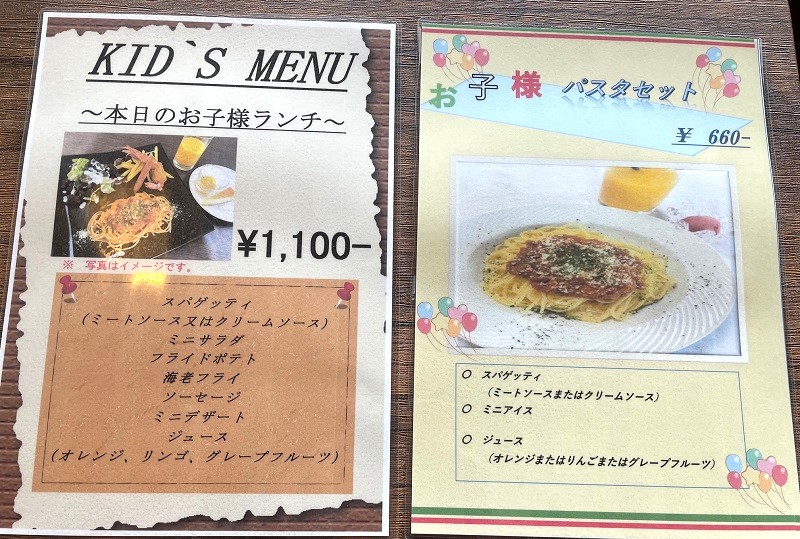 KID`S MENU
～本日のお子様ランチ～
¥1,100−
※ 写真はイメージです。
スパゲッティ
（ミートソース又はクリームソース）
ミニサラダ
フライドポテト
海老フライ
ソーセージ
ミニデザート
ジュース
（オレンジ、リンゴ、グレープフルーツ）
お子様 パスタセット
¥ 660-
○ スパゲッティ
（ミートソースまたはクリームソース）
○ ミニアイス
○ ジュース
（オレンジまたはりんごまたはグレープフルーツ）